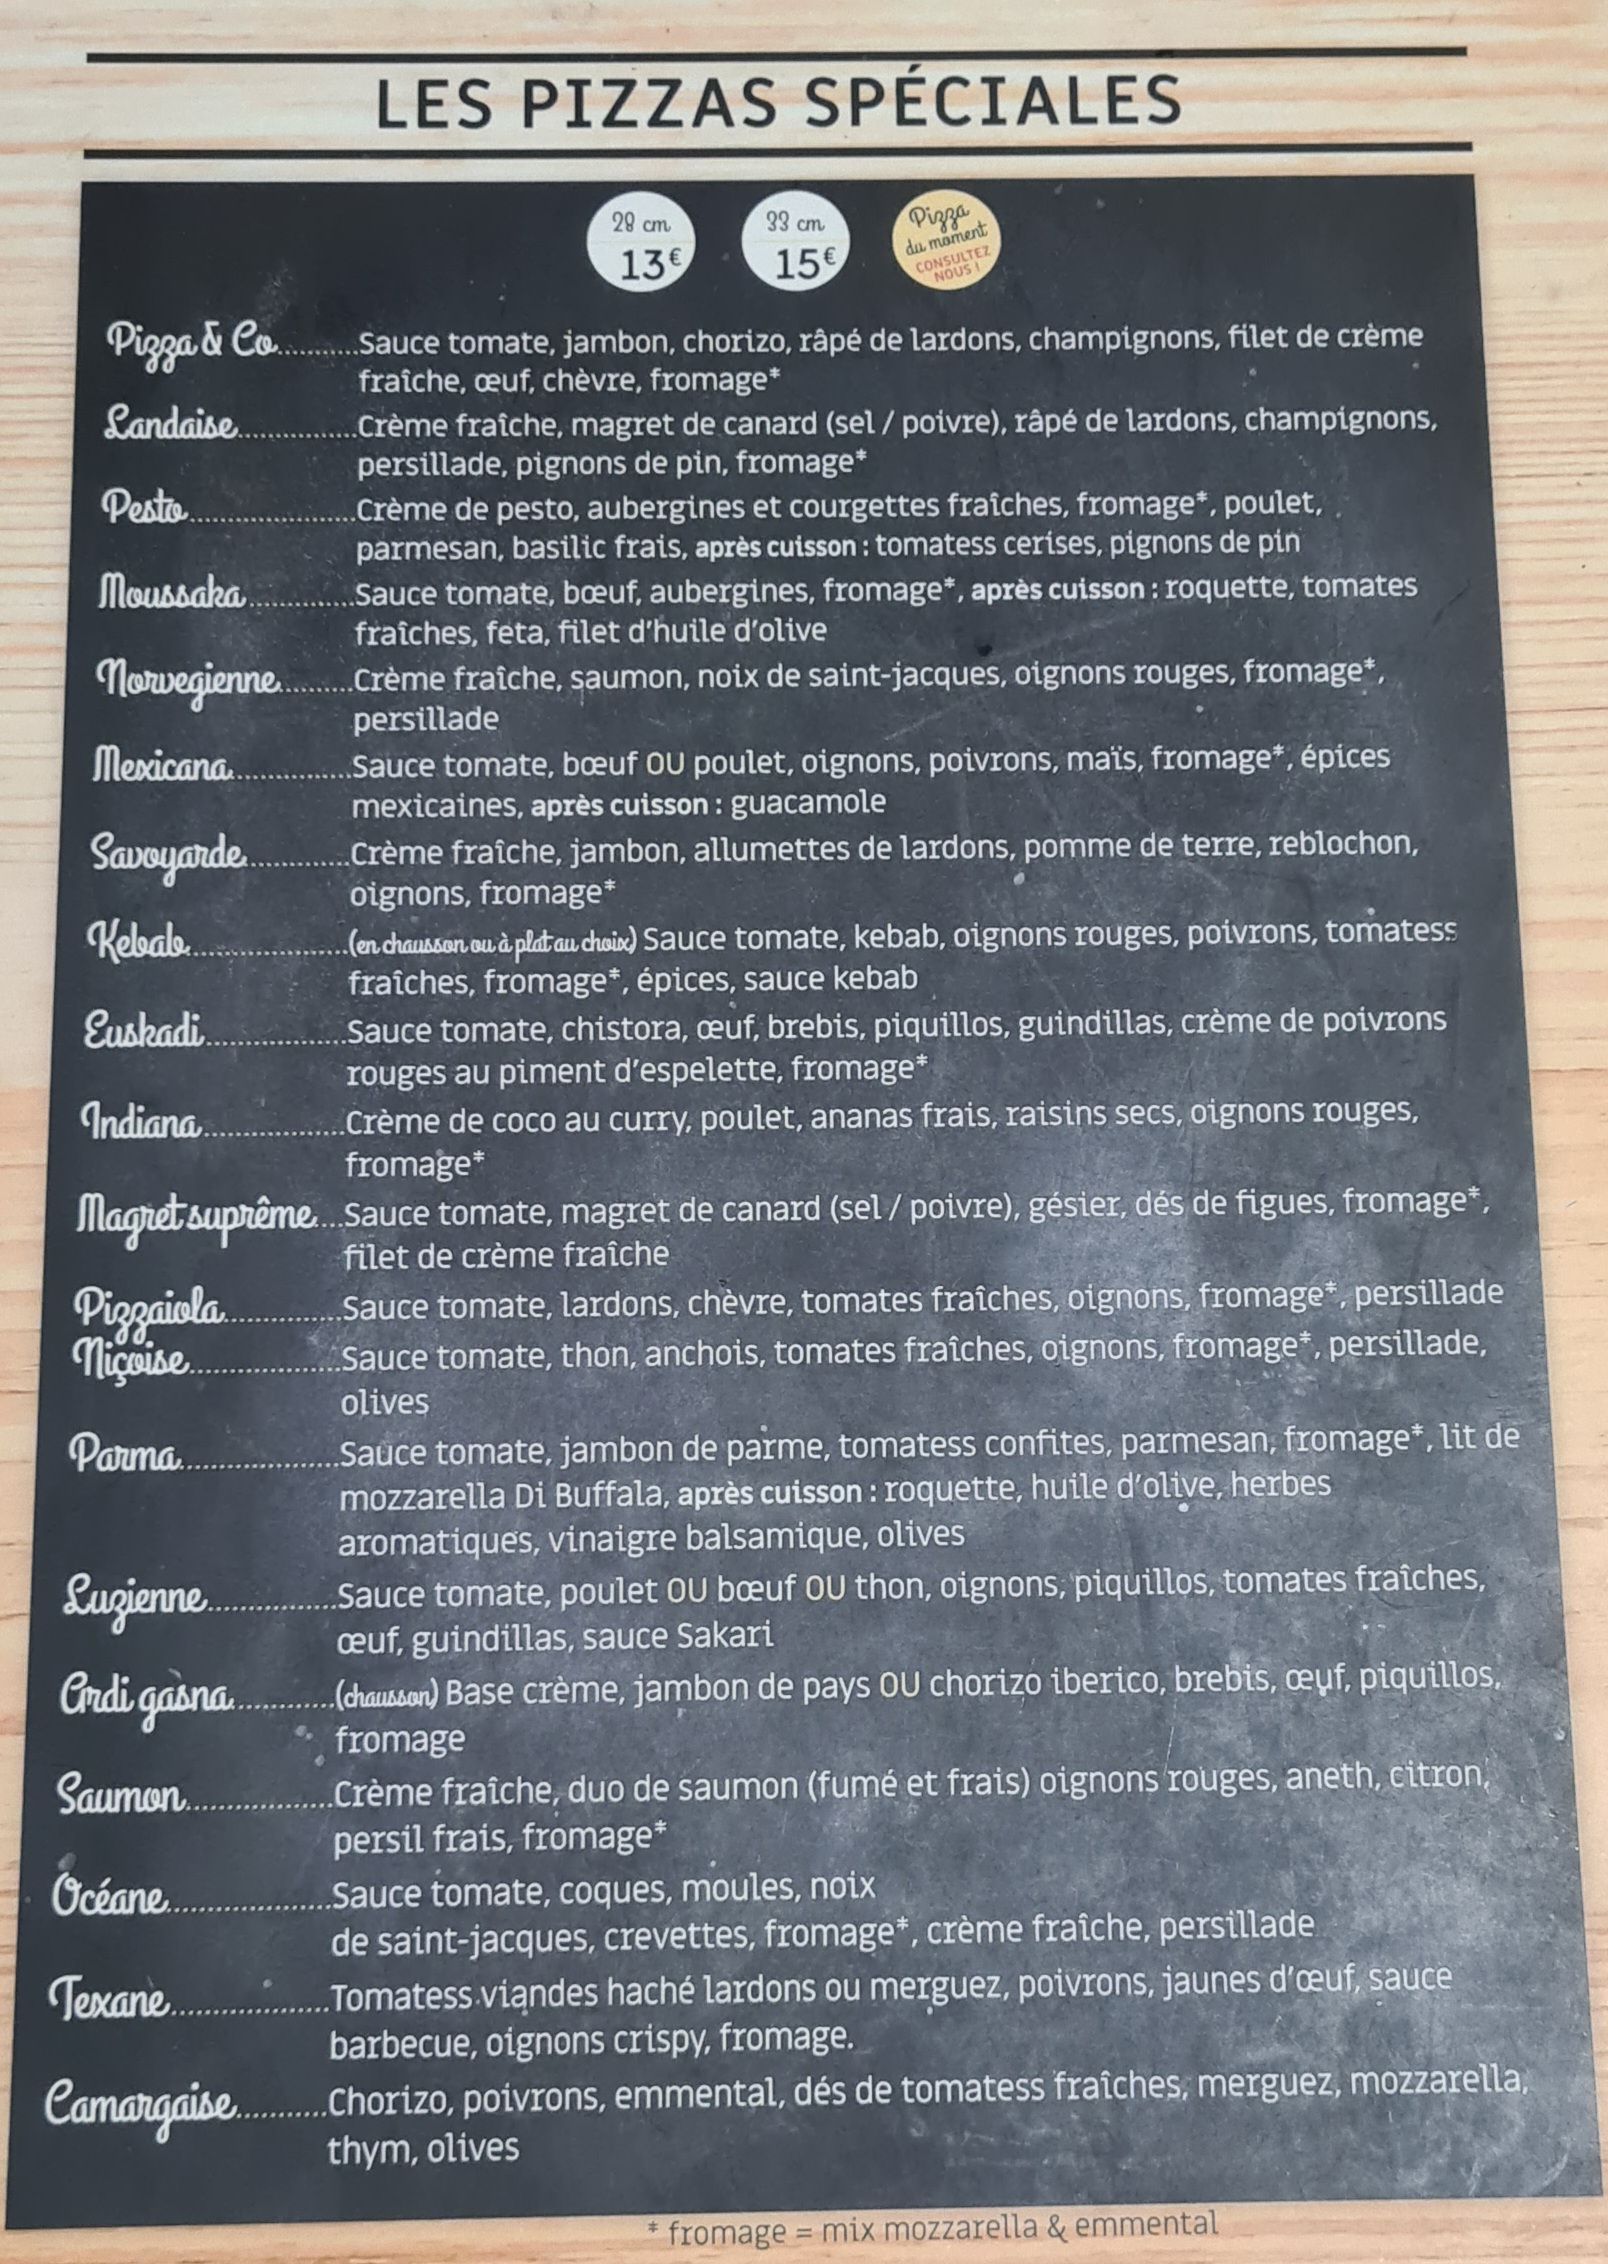 LES PIZZAS SPÉCIALES
28 cm
13€
33 cm
15€
Pizza
du moment
CONSULTEZ
NOUS !
Pizza & Co............Sauce tomate, jambon, chorizo, râpé de lardons, champignons, filet de crème
fraîche, œuf, chèvre, fromage*
Landaise................Crème fraîche, magret de canard (sel / poivre), râpé de lardons, champignons,
persillade, pignons de pin, fromage*
Pesto......................Crème de pesto, aubergines et courgettes fraîches, fromage*, poulet,
parmesan, basilic frais, après cuisson : tomatess cerises, pignons de pin
Moussaka..............Sauce tomate, bœuf, aubergines, fromage*, après cuisson : roquette, tomates
fraîches, feta, filet d'huile d'olive
Norvegienne..........Crème fraîche, saumon, noix de saint-jacques, oignons rouges, fromage*,
persillade
Mexicana................Sauce tomate, bœuf OU poulet, oignons, poivrons, maïs, fromage*, épices
mexicaines, après cuisson : guacamole
Savoyarde..............Crème fraîche, jambon, allumettes de lardons, pomme de terre, reblochon,
oignons, fromage*
Kebab.....................(en chausson ou à plat au choix) Sauce tomate, kebab, oignons rouges, poivrons, tomatess
fraîches, fromage*, épices, sauce kebab
Euskadi...................Sauce tomate, chistora, œuf, brebis, piquillos, guindillas, crème de poivrons
rouges au piment d'espelette, fromage*
Indiana...................Crème de coco au curry, poulet, ananas frais, raisins secs, oignons rouges,
fromage*
Magret suprême....Sauce tomate, magret de canard (sel / poivre), gésier, dés de figues, fromage*,
filet de crème fraîche
Pizzaiola................Sauce tomate, lardons, chèvre, tomates fraîches, oignons, fromage*, persillade
Niçoise....................Sauce tomate, thon, anchois, tomates fraîches, oignons, fromage*, persillade,
olives
Parma.....................Sauce tomate, jambon de parme, tomatess confites, parmesan, fromage*, lit de
mozzarella Di Buffala, après cuisson : roquette, huile d'olive, herbes
aromatiques, vinaigre balsamique, olives
Luzienne.................Sauce tomate, poulet OU bœuf OU thon, oignons, piquillos, tomates fraîches,
œuf, guindillas, sauce Sakari
Ardi gasna.............(chausson) Base crème, jambon de pays OU chorizo iberico, brebis, œuf, piquillos,
fromage
Saumon...................Crème fraîche, duo de saumon (fumé et frais) oignons rouges, aneth, citron,
persil frais, fromage*
Océane.....................Sauce tomate, coques, moules, noix
de saint-jacques, crevettes, fromage*, crème fraîche, persillade
Texane....................Tomatess viandes haché lardons ou merguez, poivrons, jaunes d'œuf, sauce
barbecue, oignons crispy, fromage.
Camargaise............Chorizo, poivrons, emmental, dés de tomatess fraîches, merguez, mozzarella,
thym, olives
* fromage = mix mozzarella & emmental